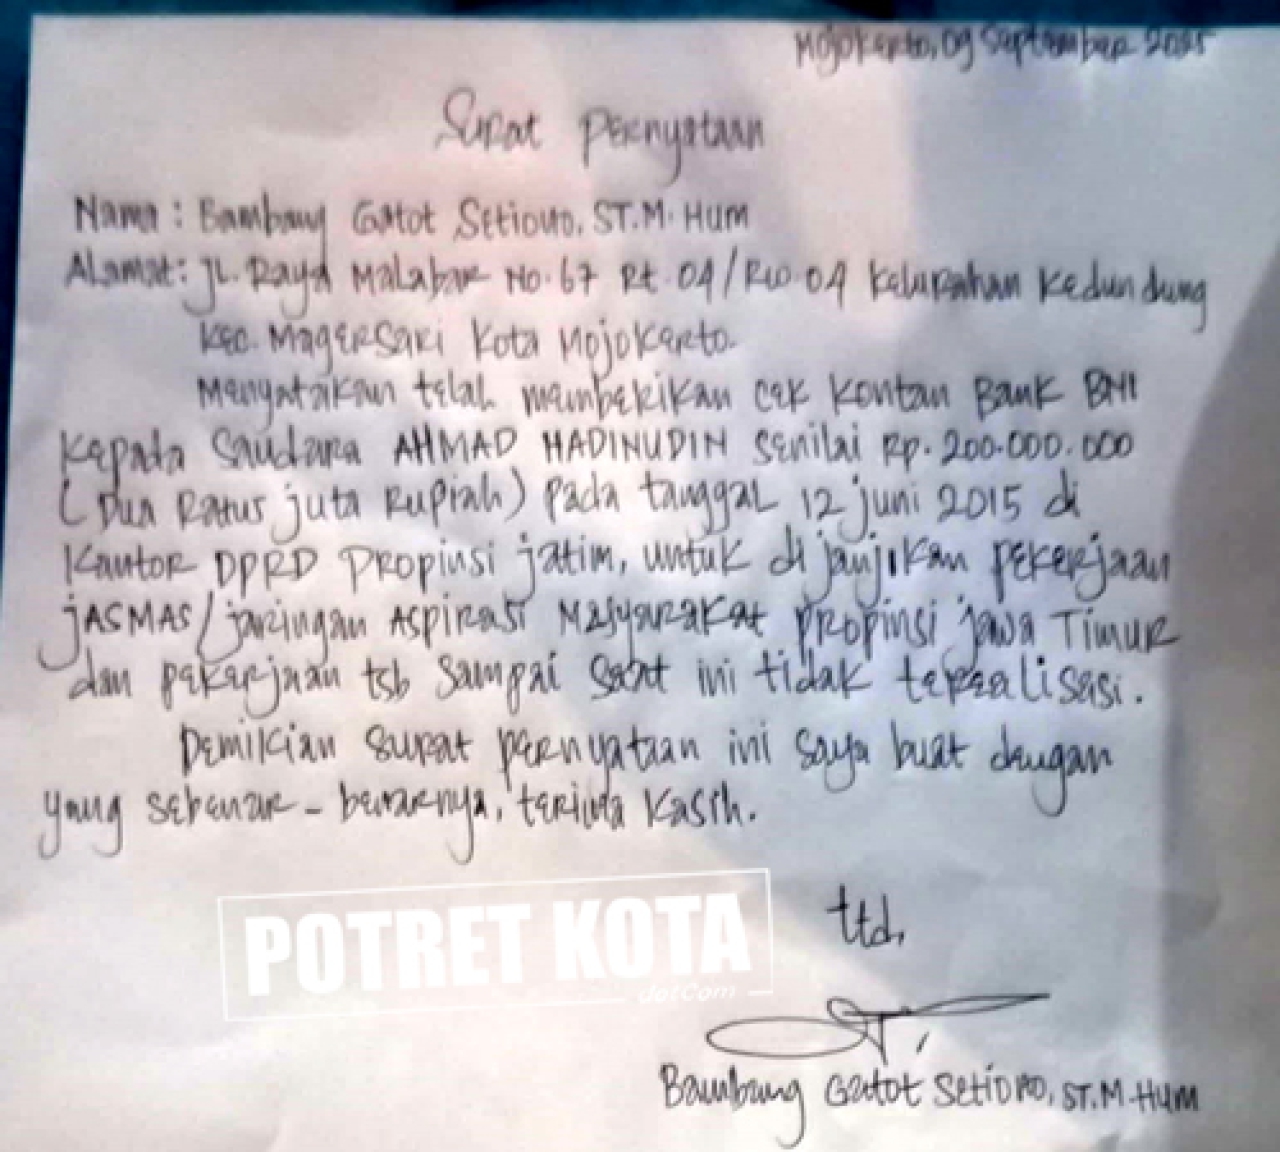 Mojokerto, 09 September 2025
Surat Pernyataan
Nama : Bambang Gatot Setiono, ST.M.Hum
Alamat: JL. Raya Malabar No.67 Rt.04/Rw.04 Kelurahan Kedundung
Kec. Magersari Kota Mojokerto.
Menyatakan telah memberikan cek kontan Bank BNI
Kepada Saudara AHMAD HADINUDIN Senilai Rp.200.000.000
(Dua Ratus juta Rupiah) pada tanggal 12 juni 2015 di
Kantor DPRD Propinsi jatim, untuk di janjikan pekerjaan
JASMAS/jaringan Aspirasi Masyarakat Propinsi jawa Timur
dan pekerjaan tsb sampai saat ini tidak terealisasi.
Demikian surat pernyataan ini saya buat dengan
yang sebenar-benarnya, terima kasih.
ttd,
POTRET KOTA
dotCom
Bambang Gatot Setiono, ST.M.Hum